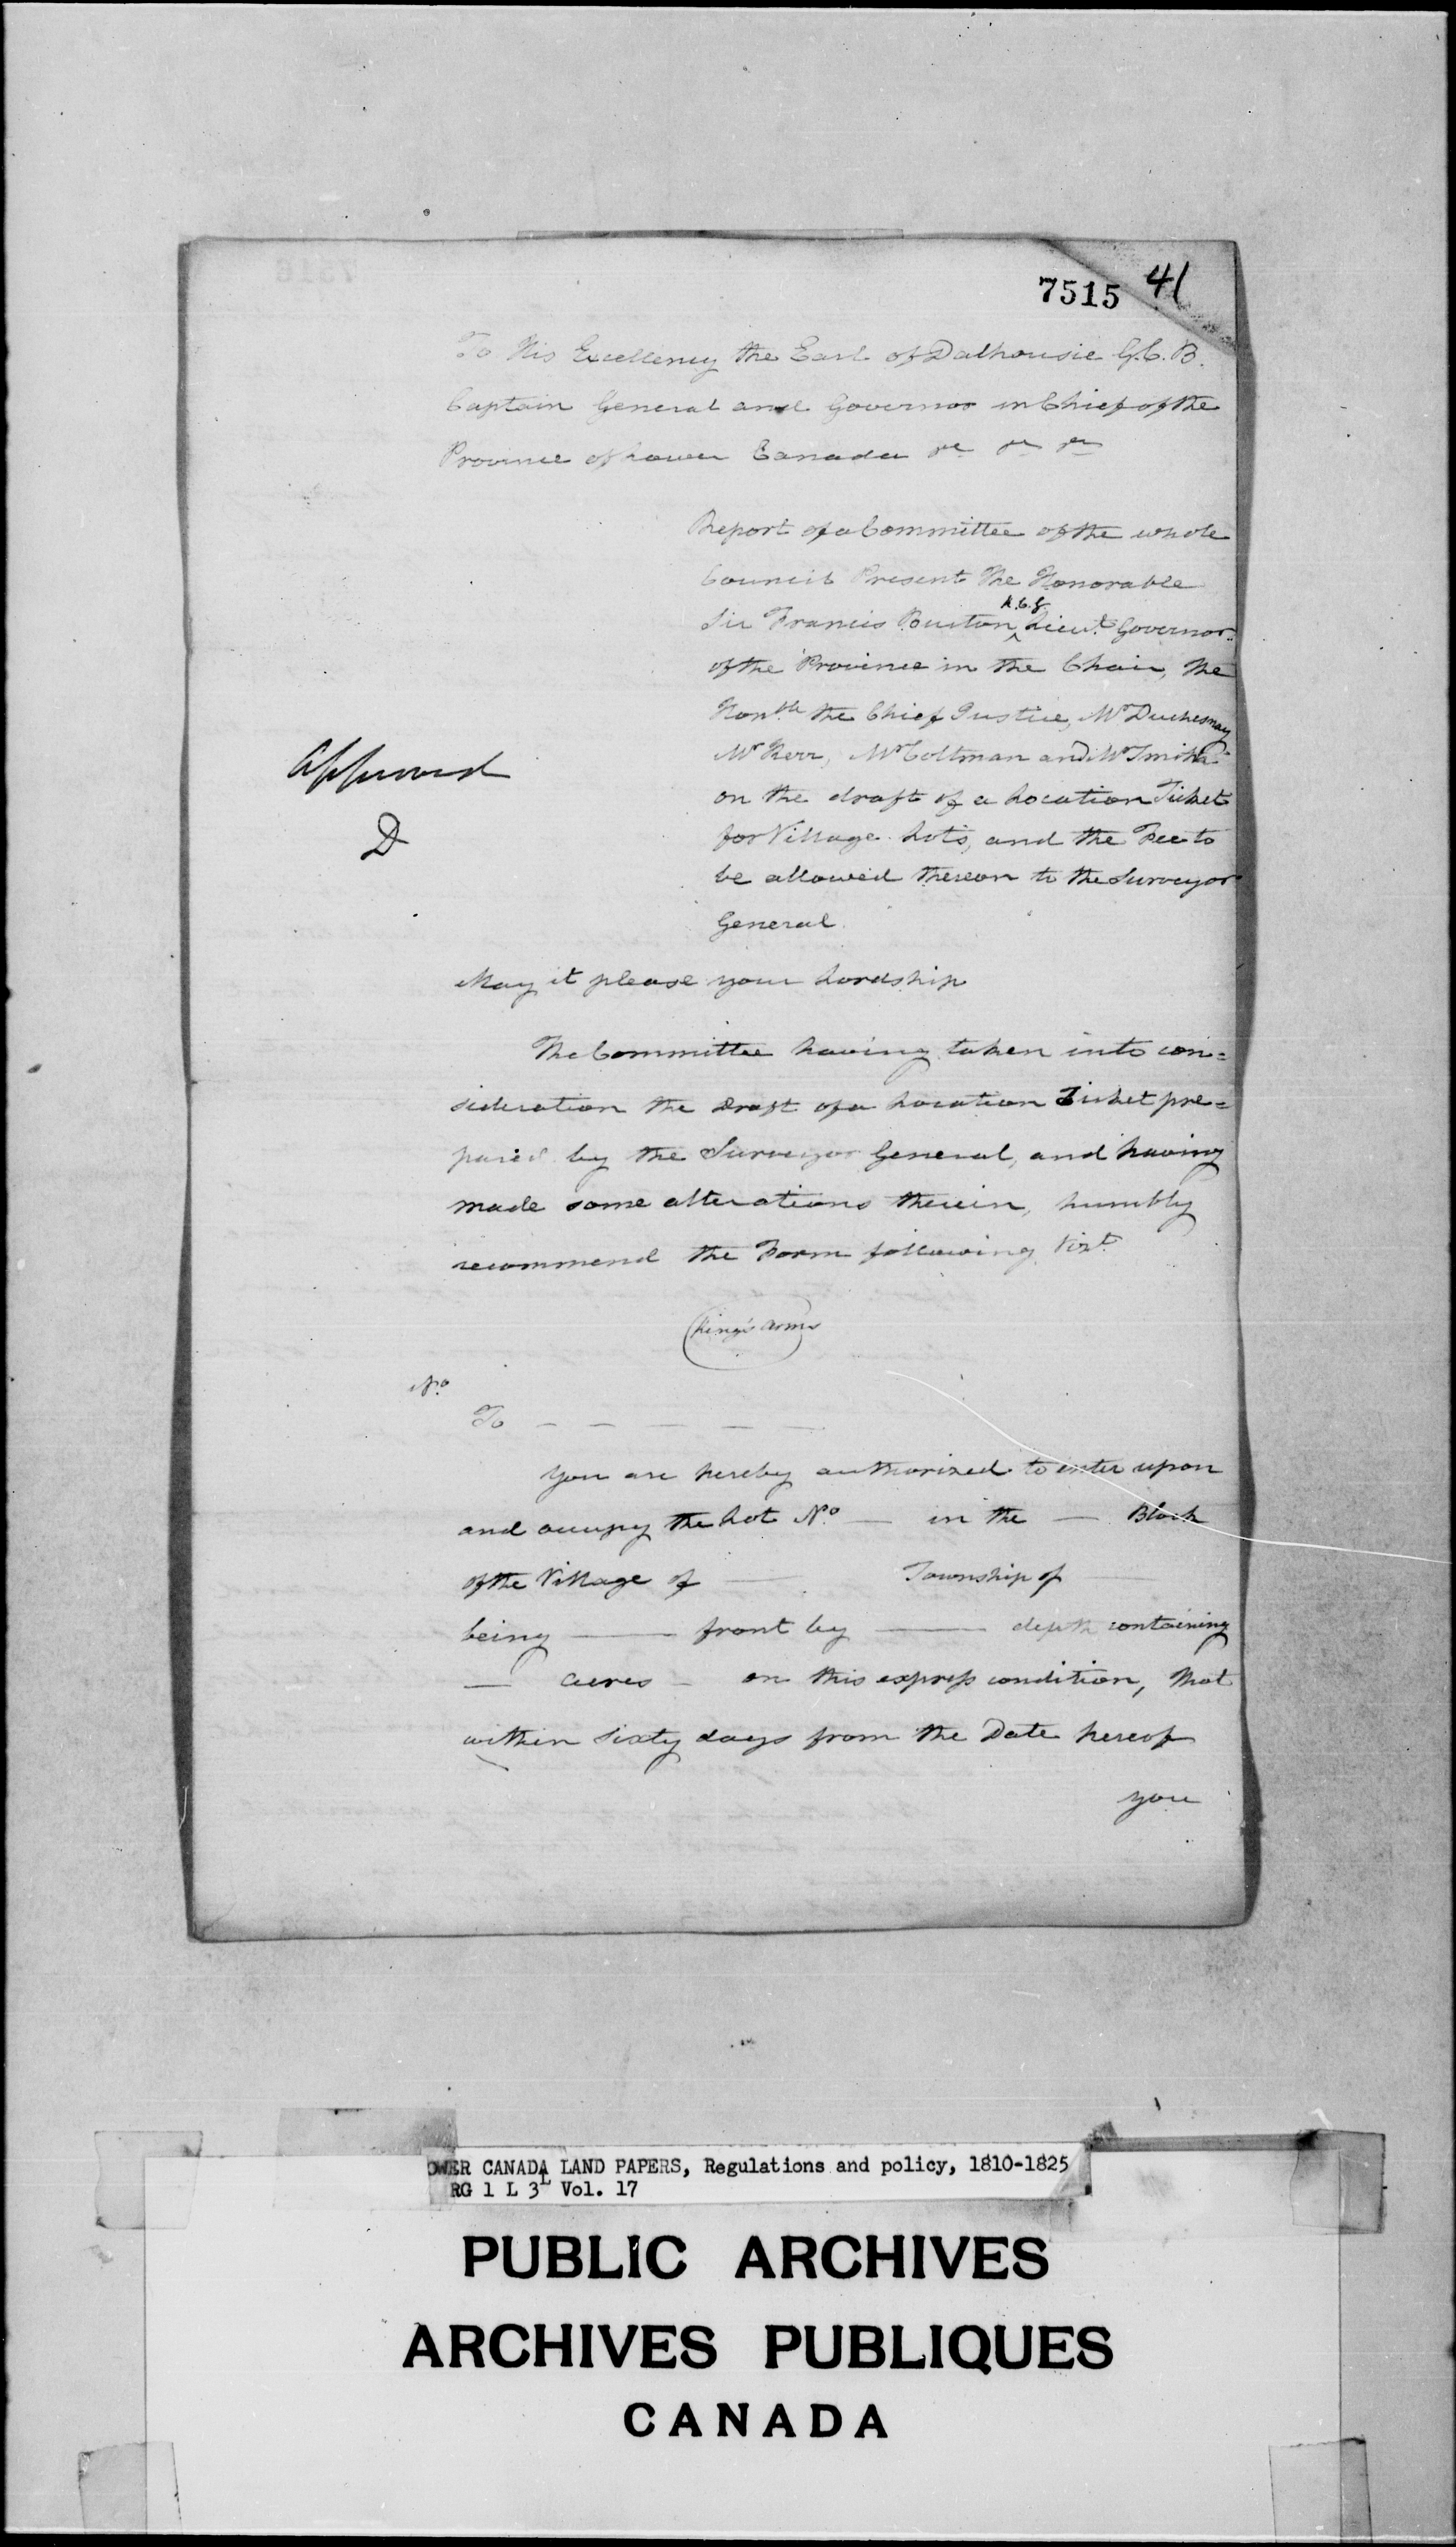 7515 41
To His Excellency the Earl of Dalhousie G.C.B.
Captain General and Governor in Chief of the
Province of Lower Canada &c &c &c
Report of a Committee of the whole
Council Present The Honorable
K.C.G.
Sir Francis Burton, ^ Lieut. Governor
of the Province in the Chair, the
Honble the Chief Justice, Mr Duchesnay
Mr Kerr, Mr Coltman and Mr Smith
on the draft of a Location Ticket
for Village Lots, and the Fee to
be allowed thereon to the Surveyor
General.
Approved
D
May it please your Lordship
The Committee having taken into con=
sideration the draft of a Location Ticket pre=
pared by the Surveyor General, and having
made some alterations therein, humbly
recommend the Form following Vizt
(King's Arms)
No
To — — — — —
You are hereby authorized to enter upon
and occupy the Lot No — in the — Block
of the Village of — Township of —
being — front by — depth containing
— acres — on this express condition, that
within sixty days from the Date hereof
you
OWER CANADA LAND PAPERS, Regulations and policy, 1810-1825
RG 1 L 3L Vol. 17
PUBLIC ARCHIVES
ARCHIVES PUBLIQUES
CANADA